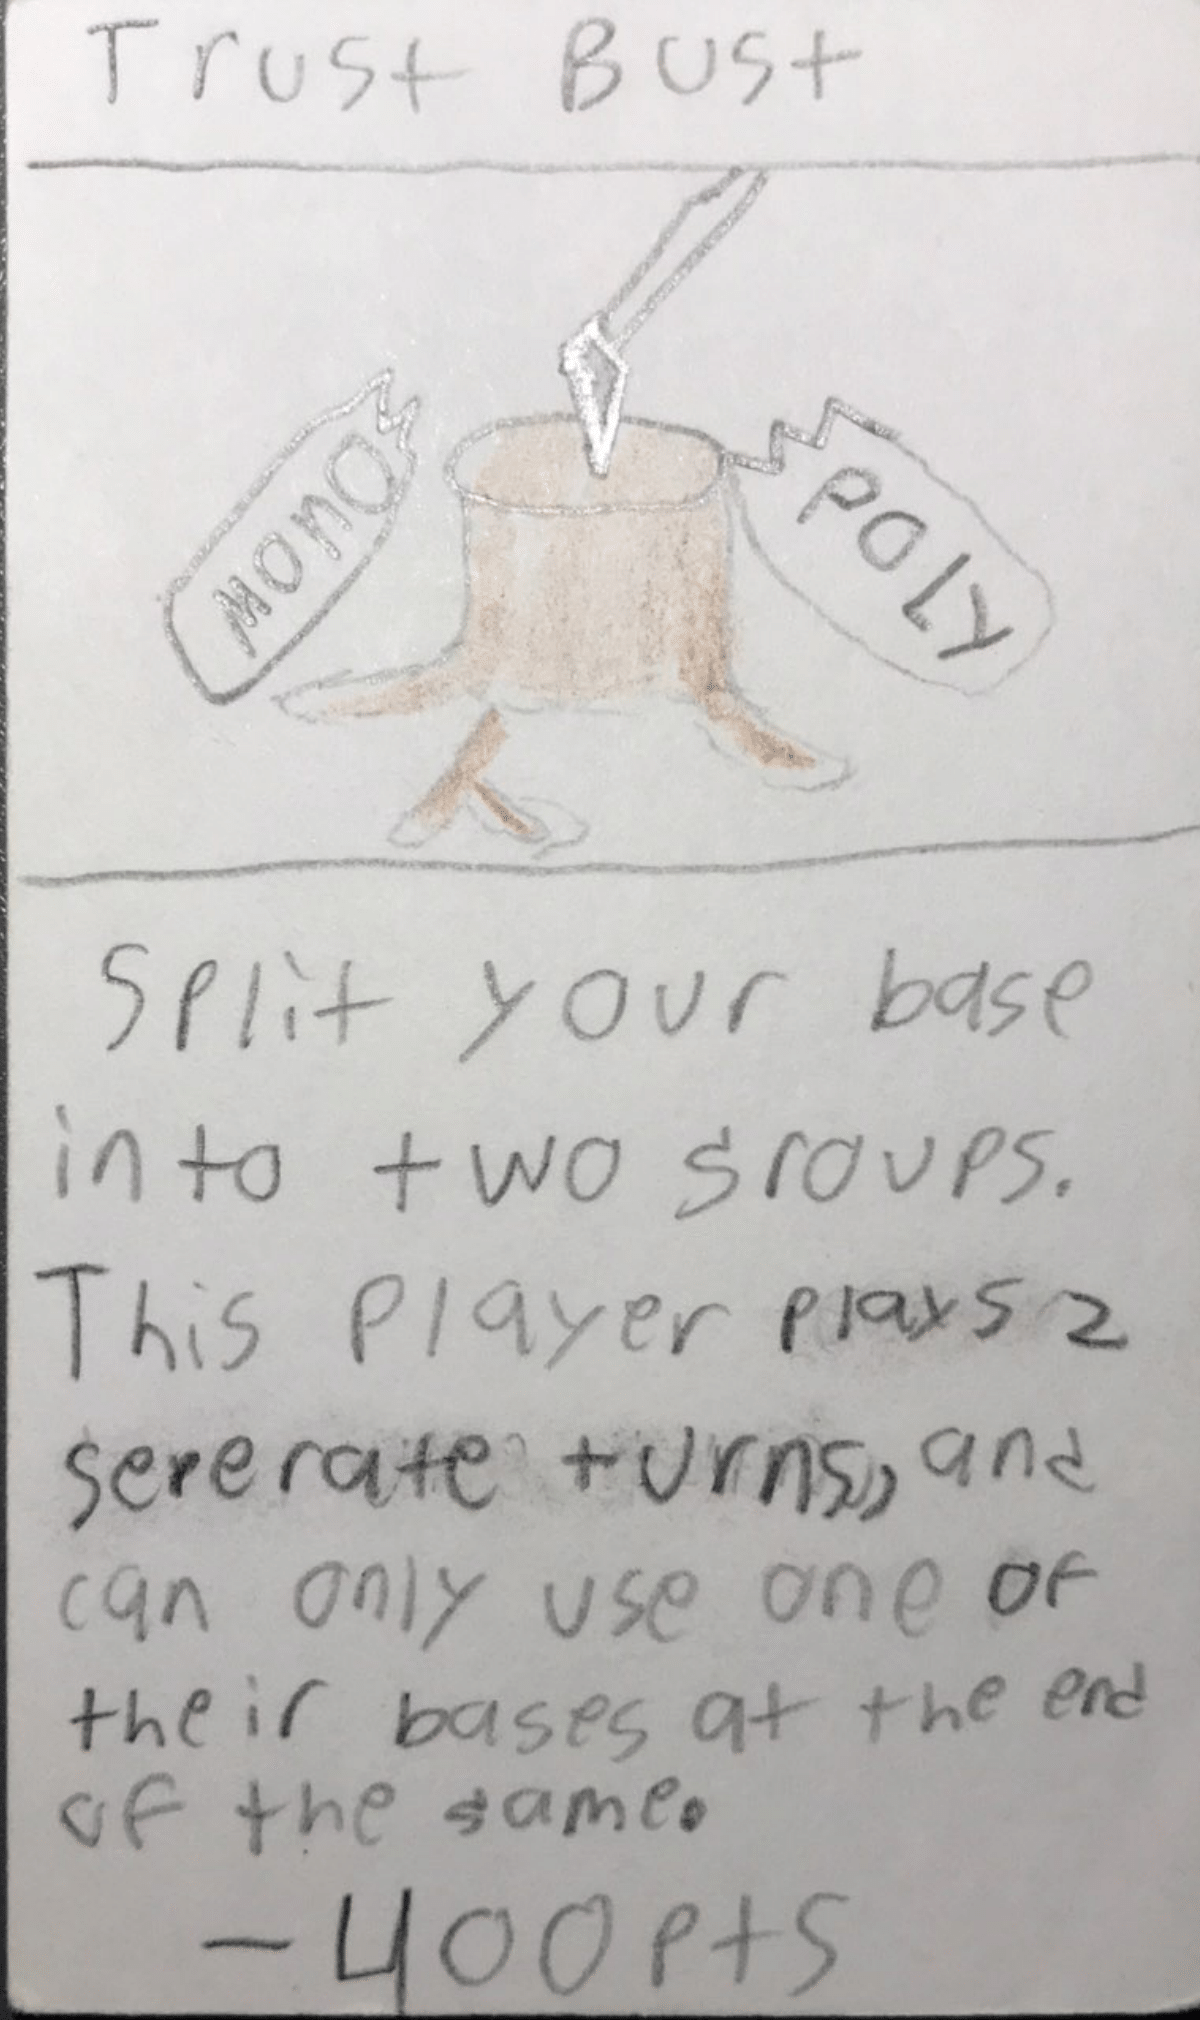 Trust Bust
MONO
POLY
Split your base
into two groups.
This player plays 2
sererate turns,, and
can only use one of
their bases at the end
of the game.
-400pts